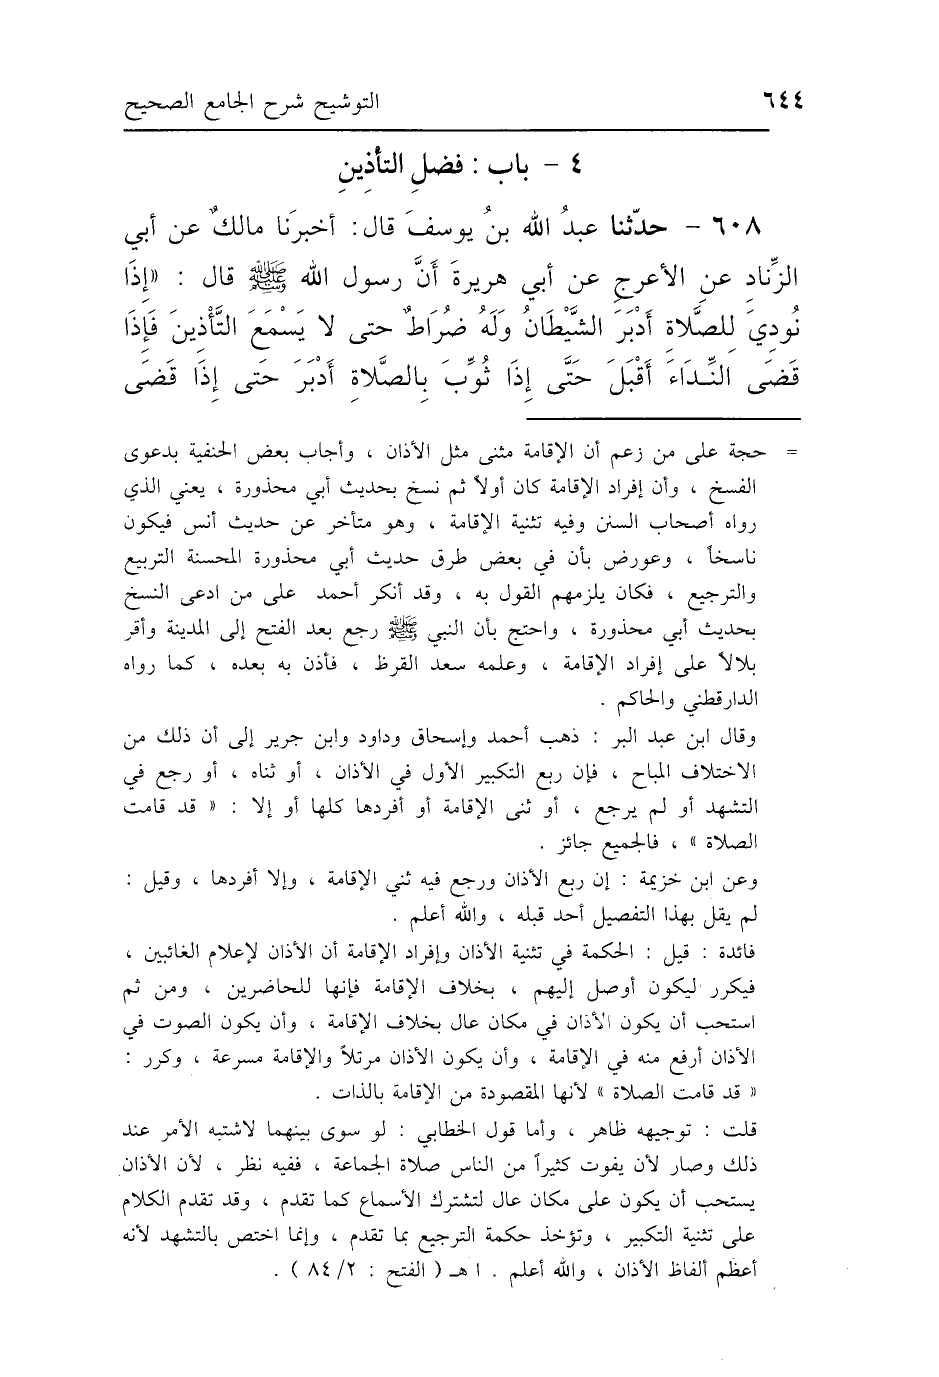 ٦٤٤ التوشيح شرح الجامع الصحيح
٤ - باب : فضلِ التأذِينِ
٦٠٨ - حدّثنا عبدُ الله بنُ يوسفَ قال: أخبرَنا مالكٌ عن أبي
الزِّنادِ عنِ الأعرجِ عن أبي هريرةَ أنَّ رسول الله ﷺ قال : «إذَا
نُودِيَ للِصَّلاة أَدْبَرَ الشَّيْطَانُ وَلَهُ ضُرَاطٌ حتى لا يَسْمَعَ التَّأْذِينَ فَإذَا
قَضَى النِّدَاءَ أَقْبَلَ حَتَّى إذَا ثُوِّبَ بِالصَّلاةِ أَدْبَرَ حَتى إذَا قَضَى
= حجة على من زعم أن الإقامة مثنى مثل الأذان ، وأجاب بعض الحنفية بدعوى
الفسخ ، وأن إفراد الإقامة كان أولاً ثم نسخ بحديث أبي محذورة ، يعني الذي
رواه أصحاب السنن وفيه تثنية الإقامة ، وهو متأخر عن حديث أنس فيكون
ناسخاً ، وعورض بأن في بعض طرق حديث أبي محذورة المحسنة التربيع
والترجيع ، فكان يلزمهم القول به ، وقد أنكر أحمد على من ادعى النسخ
بحديث أبي محذورة ، واحتج بأن النبي ﷺ رجع بعد الفتح إلى المدينة وأقر
بلالاً على إفراد الإقامة ، وعلمه سعد القرظ ، فأذن به بعده ، كما رواه
الدارقطني والحاكم .
وقال ابن عبد البر : ذهب أحمد وإسحاق وداود وابن جرير إلى أن ذلك من
الاختلاف المباح ، فإن ربع التكبير الأول في الأذان ، أو ثناه ، أو رجع في
التشهد أو لم يرجع ، أو ثنى الإقامة أو أفردها كلها أو إلا : « قد قامت
الصلاة » ، فالجميع جائز .
وعن ابن خزيمة : إن ربع الأذان ورجع فيه ثني الإقامة ، وإلا أفردها ، وقيل :
لم يقل بهذا التفصيل أحد قبله ، والله أعلم .
فائدة : قيل : الحكمة في تثنية الأذان وإفراد الإقامة أن الأذان لإعلام الغائبين ،
فيكرر ليكون أوصل إليهم ، بخلاف الإقامة فإنها للحاضرين ، ومن ثم
استحب أن يكون الأذان في مكان عال بخلاف الإقامة ، وأن يكون الصوت في
الأذان أرفع منه في الإقامة ، وأن يكون الأذان مرتلاً والإقامة مسرعة ، وكرر :
« قد قامت الصلاة » لأنها المقصودة من الإقامة بالذات .
قلت : توجيهه ظاهر ، وأما قول الخطابي : لو سوى بينهما لاشتبه الأمر عند
ذلك وصار لأن يفوت كثيراً من الناس صلاة الجماعة ، ففيه نظر ، لأن الأذان
يستحب أن يكون على مكان عال لتشترك الأسماع كما تقدم ، وقد تقدم الكلام
على تثنية التكبير ، وتؤخذ حكمة الترجيع بما تقدم ، وإنما اختص بالتشهد لأنه
أعظم ألفاظ الأذان ، والله أعلم . اهـ ( الفتح : ٢/ ٨٤ ) .